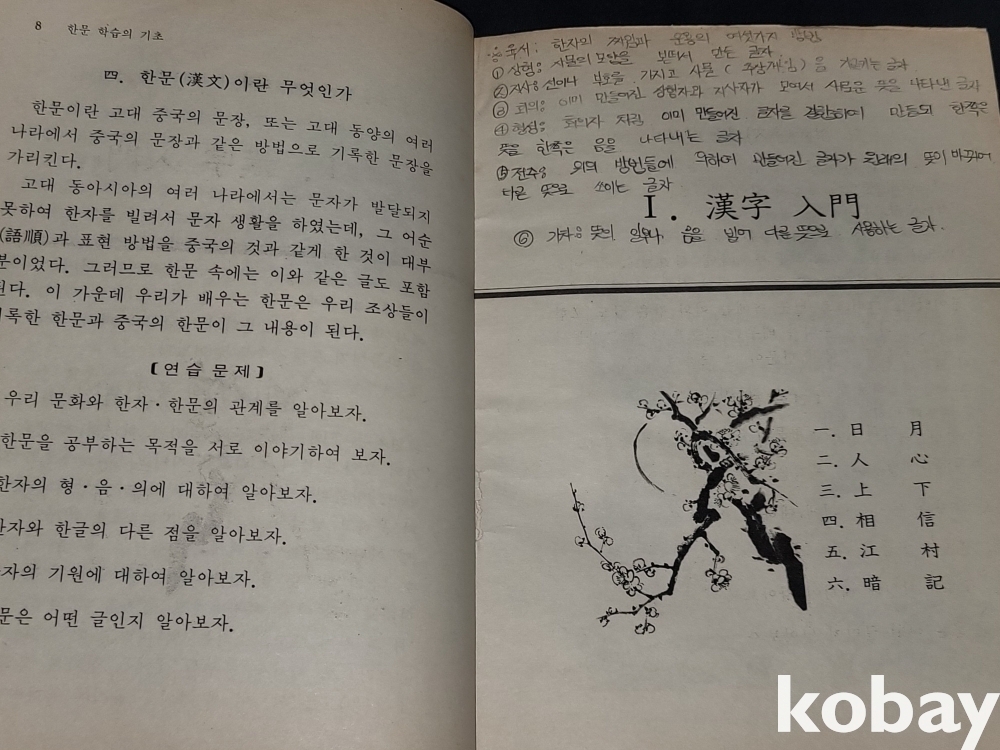 8 한문 학습의 기초
四. 한문(漢文)이란 무엇인가
한문이란 고대 중국의 문장, 또는 고대 동양의 여러
나라에서 중국의 문장과 같은 방법으로 기록한 문장을
가리킨다.
고대 동아시아의 여러 나라에서는 문자가 발달되지
못하여 한자를 빌려서 문자 생활을 하였는데, 그 어순
(語順)과 표현 방법을 중국의 것과 같게 한 것이 대부
분이었다. 그러므로 한문 속에는 이와 같은 글도 포함
된다. 이 가운데 우리가 배우는 한문은 우리 조상들이
기록한 한문과 중국의 한문이 그 내용이 된다.
(연습 문제)
우리 문화와 한자·한문의 관계를 알아보자.
한문을 공부하는 목적을 서로 이야기하여 보자.
한자의 형·음·의에 대하여 알아보자.
한자와 한글의 다른 점을 알아보자.
자의 기원에 대하여 알아보자.
문은 어떤 글인지 알아보자.
육서: 한자의 짜임과 운용의 여섯가지 방법
① 상형: 사물의 모양을 본떠서 만든 글자
② 지사: 선이나 부호를 가지고 사물(추상개념)을 가리키는 글자
③ 회의: 이미 만들어진 상형자와 지사자가 모여서 새로운 뜻을 나타낸 글자
④ 형성: 회의자 처럼 이미 만들어진 글자를 결합하여 만들되 한쪽은
뜻을 한쪽은 음을 나타내는 글자
⑤ 전주: 위의 방법들에 의하여 만들어진 글자가 원래의 뜻이 바뀌어
다른 뜻으로 쓰이는 글자
I. 漢字 入門
⑥ 가차: 뜻이 음을 빌어 다른 뜻으로 사용하는 글자.
一. 日 月
二. 人 心
三. 上 下
四. 相 信
五. 江 村
六. 暗 記
kobay